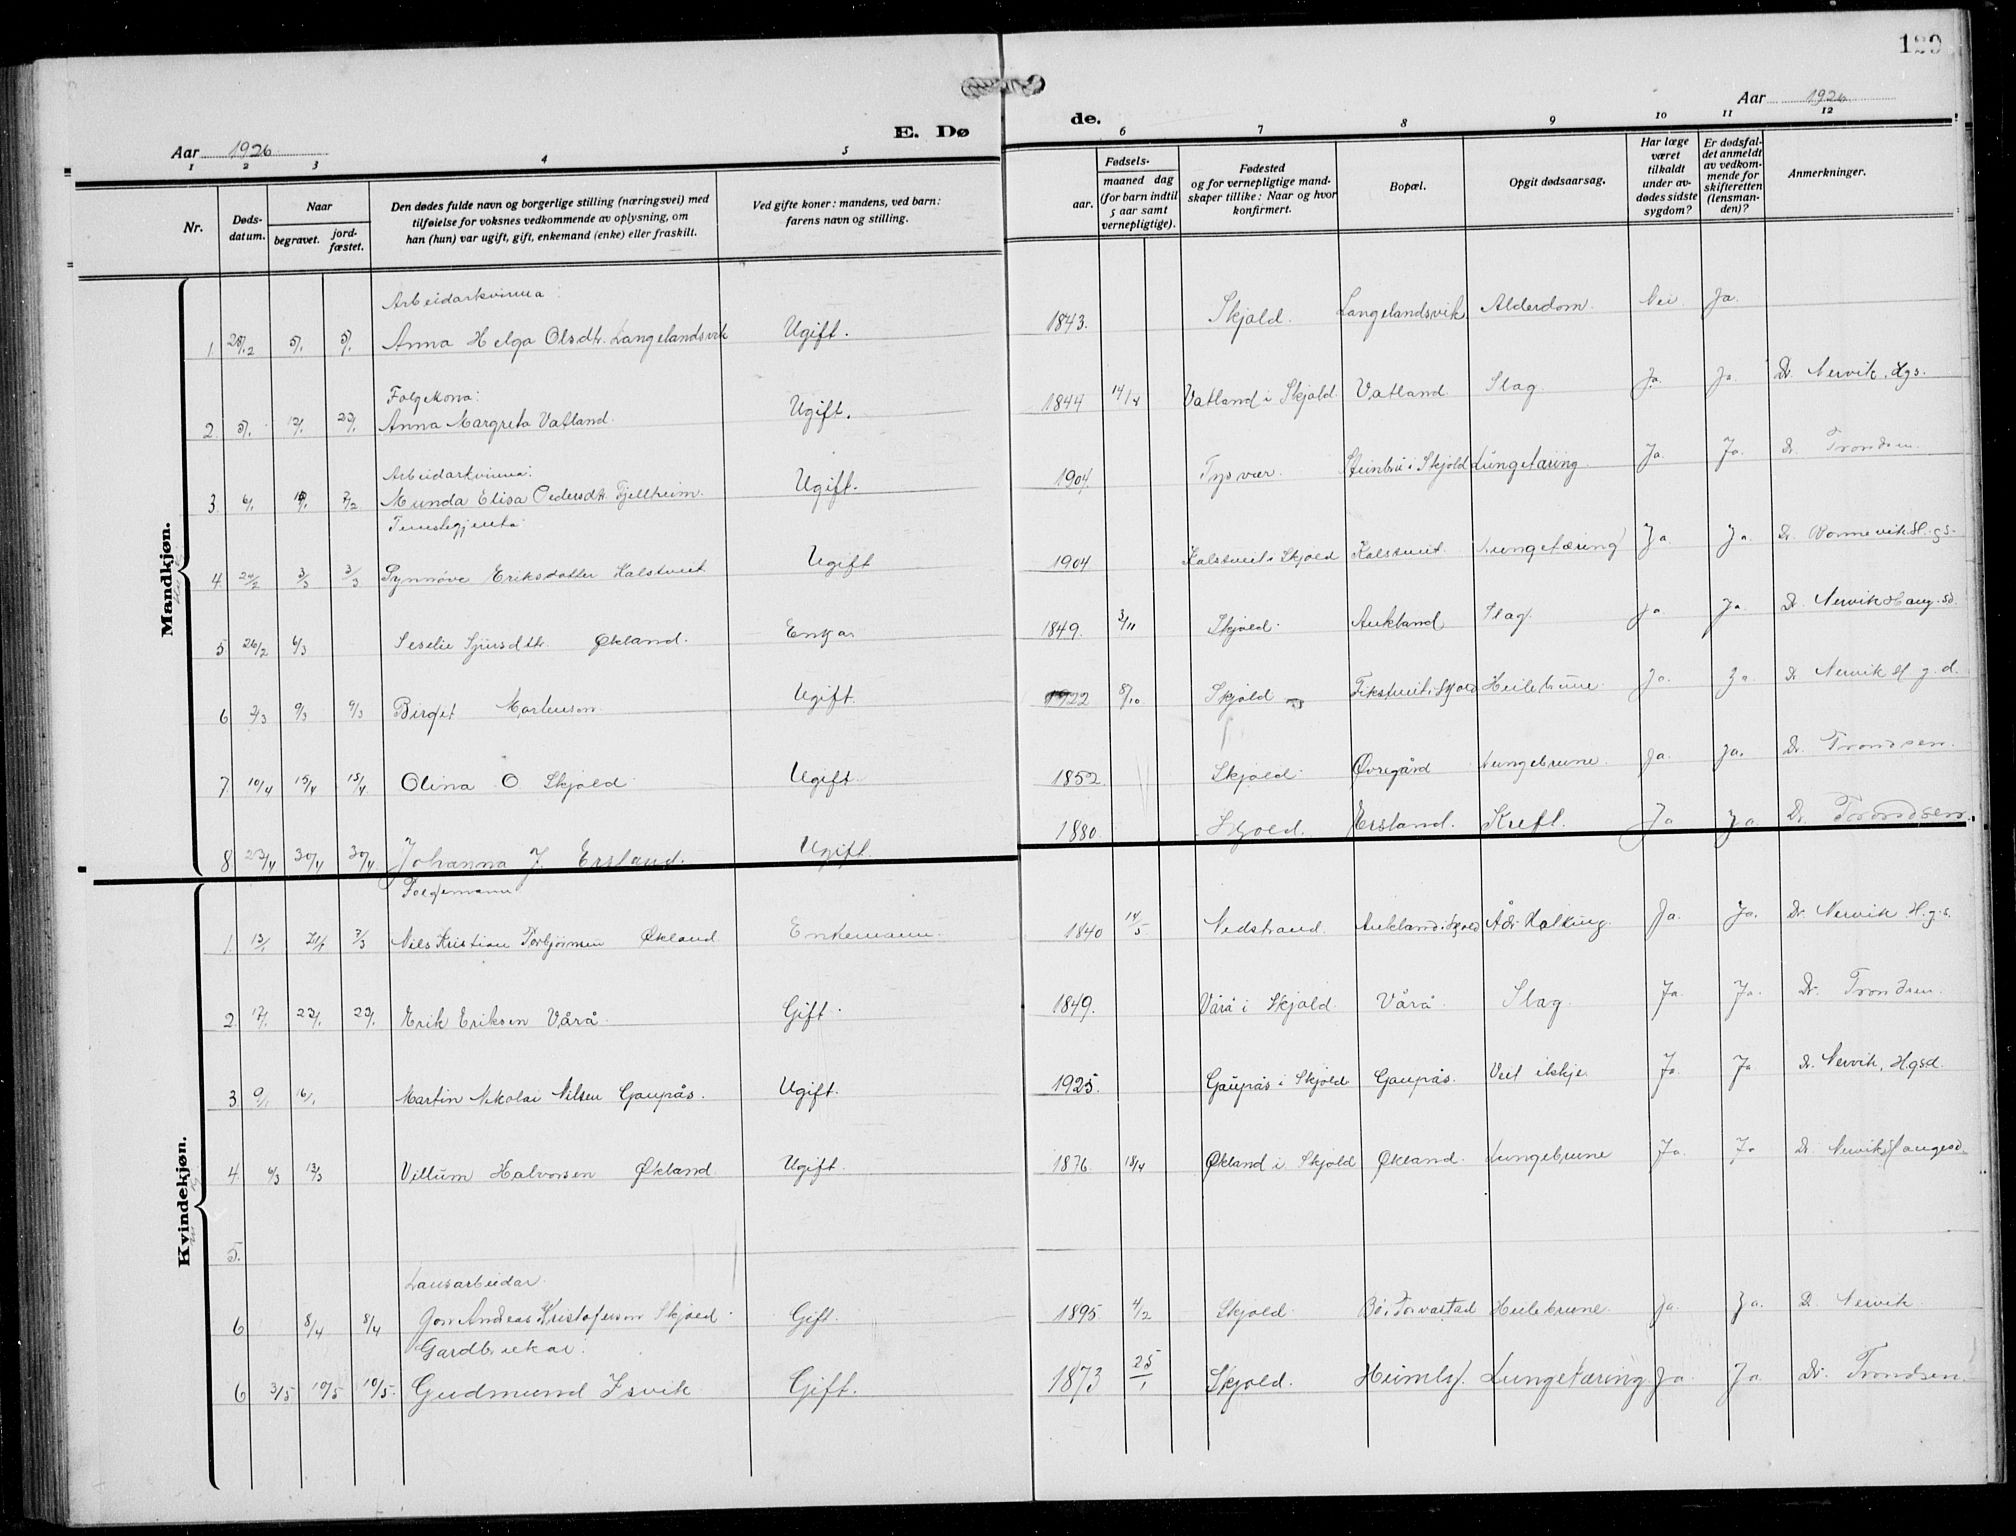 129
Aar 1926
Aar 1926
E. Dø
de.
1 2 3 4 5
6 7 8 9 10 11 12
Nr.
Døds-
datum.
Naar
begravet.
jord-
fæstet.
Den dødes fulde navn og borgerlige stilling (næringsvei) med
tilføielse for voksnes vedkommende av oplysning, om
han (hun) var ugift, gift, enkemand (enke) eller fraskilt.
Ved gifte koner: mandens, ved barn:
farens navn og stilling.
Fødsels-
aar.
maaned dag
(for barn indtil
5 aar samt
vernepligtige).
Fødested
og for vernepligtige mand-
skaper tillike: Naar og hvor
konfirmert.
Bopæl.
Opgit dødsaarsag.
Har læge
været
tilkaldt
under av-
dødes sidste
sygdom?
Er dødsfal-
det anmeldt
av vedkom-
mende for
skifteretten
(lensman-
den)?
Anmerkninger.
Mandkjøn.
Arbeidarkvinna:
1 28/12 5/1 5/1 Anna Helga Olsdtr. Langelandsvik Ugift. 1843. Skjold. Langelandsvik Alderdom. Nei Ja.
Folgekona:
2 5/1 12/1 23/1 Anna Margreta Vatland. Ugift. 1844 14/4 Vatland i Skjold Vatland. Slag. Ja. Ja. Dr. Nervik, Hgs.
Arbeidarkvinna:
3 6/1 7/2 Munda Elisa Pedersdtr. Fjellheim. Ugift. 1904. Tysvær. Steinbru i Skjold Lungetæring. Ja. Ja. Dr. Trondsen.
Tenestegjenta:
4 24/2 3/3 3/3 Synnøve Eriksdatter Kalstveit Ugift 1904 Kalstveit i Skjold Kalstveit. Lungetæring Ja Ja. Dr. Vormevik H.gs.
5 26/2 6/3 Seselie Sjursdtr. Økland. Enkja 1849. 3/11 Skjold. Aukland Slag. Ja. Ja. Dr. Nervik Haug.sd.
6 2/3 9/3 9/3 Birgit Martenson. Ugift. 1922 8/10 Skjold Tikstveit i Skjold Heilebrune. Ja. Ja. Dr. Nervik H.g.d.
7 10/4 15/4 15/4 Olina O Skjold Ugift. 1852 Skjold. Øvregård Lungebrune. Ja. Ja. Dr. Trondsen.
8 23/4 30/4 30/4 Johanna J. Ersland. Ugift. 1880 Skjold. Ersland. Kreft. Ja Ja. Dr. Trondsen.
Kvindekjøn.
Folgemann
1. 13/1 21/1 7/3 Nils Kristian Torbjørnsen Økland Enkemann. 1840 14/5 Nedstrand. Aukland i Skjold Ådr. Kalking. Ja. Ja. Dr. Nervik H.g.s.
2. 17/1 23/1 23/1. Erik Eriksen Vårå. Gift. 1849. Vårå i Skjold. Vårå. Slag. Ja. Ja. Dr. Trondsen.
3. 9/1 16/1 Martin Nikolai Nilsen Gaupås. Ugift. 1925. Gaupås i Skjold Gaupås. Veit ikkje. Ja. Ja Dr. Nervik, Hgsd.
4. 6/3 13/3 Villum Halvorsen Økland. Ugift. 1876. 18/4 Økland i Skjold Økland. Lungebrune Ja. Ja Dr. Nervik Haugesd.
5.
Lausarbeidar.
6 8/4 8/4 Jon Andreas Kristoferson Skjold. Gift. 1895. 4/2 Skjold. Bø i Torvastad Heilebrune. Ja. Ja. Dr. Nervik
Gardbrukar:
6 3/5 10/5 10/5. Gudmund Isvik Gift. 1873 25/1 Skjold. Heimly. Lungetæring. Ja. Ja Dr. Trondsen.